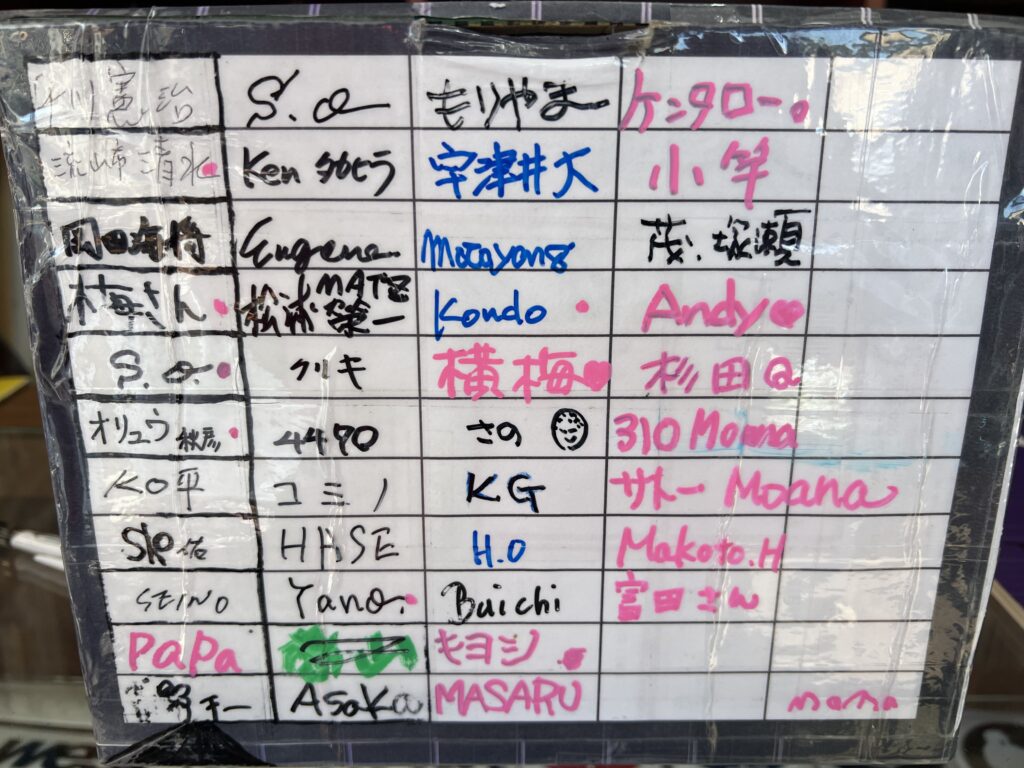 S.a
もりやま
ケンタロー。
清水
Ken タカヒラ
宇津井大
小竿
岡田
Eugene
Motoyong
茂 塚瀬
梅さん
MATZ
松浦 榮一
Kondo
Andy
S.a.
クリキ
横梅
杉田Q
オリュウ 秋彦
4470
さの
310 Moana
KO平
コミノ
KG
サトー Moana
佑
HASE
H.O
Makoto.H
SEINO
Yano.
Buichi
富田さん
PaPa
キヨシ
チー
Asaka
MASARU
mama